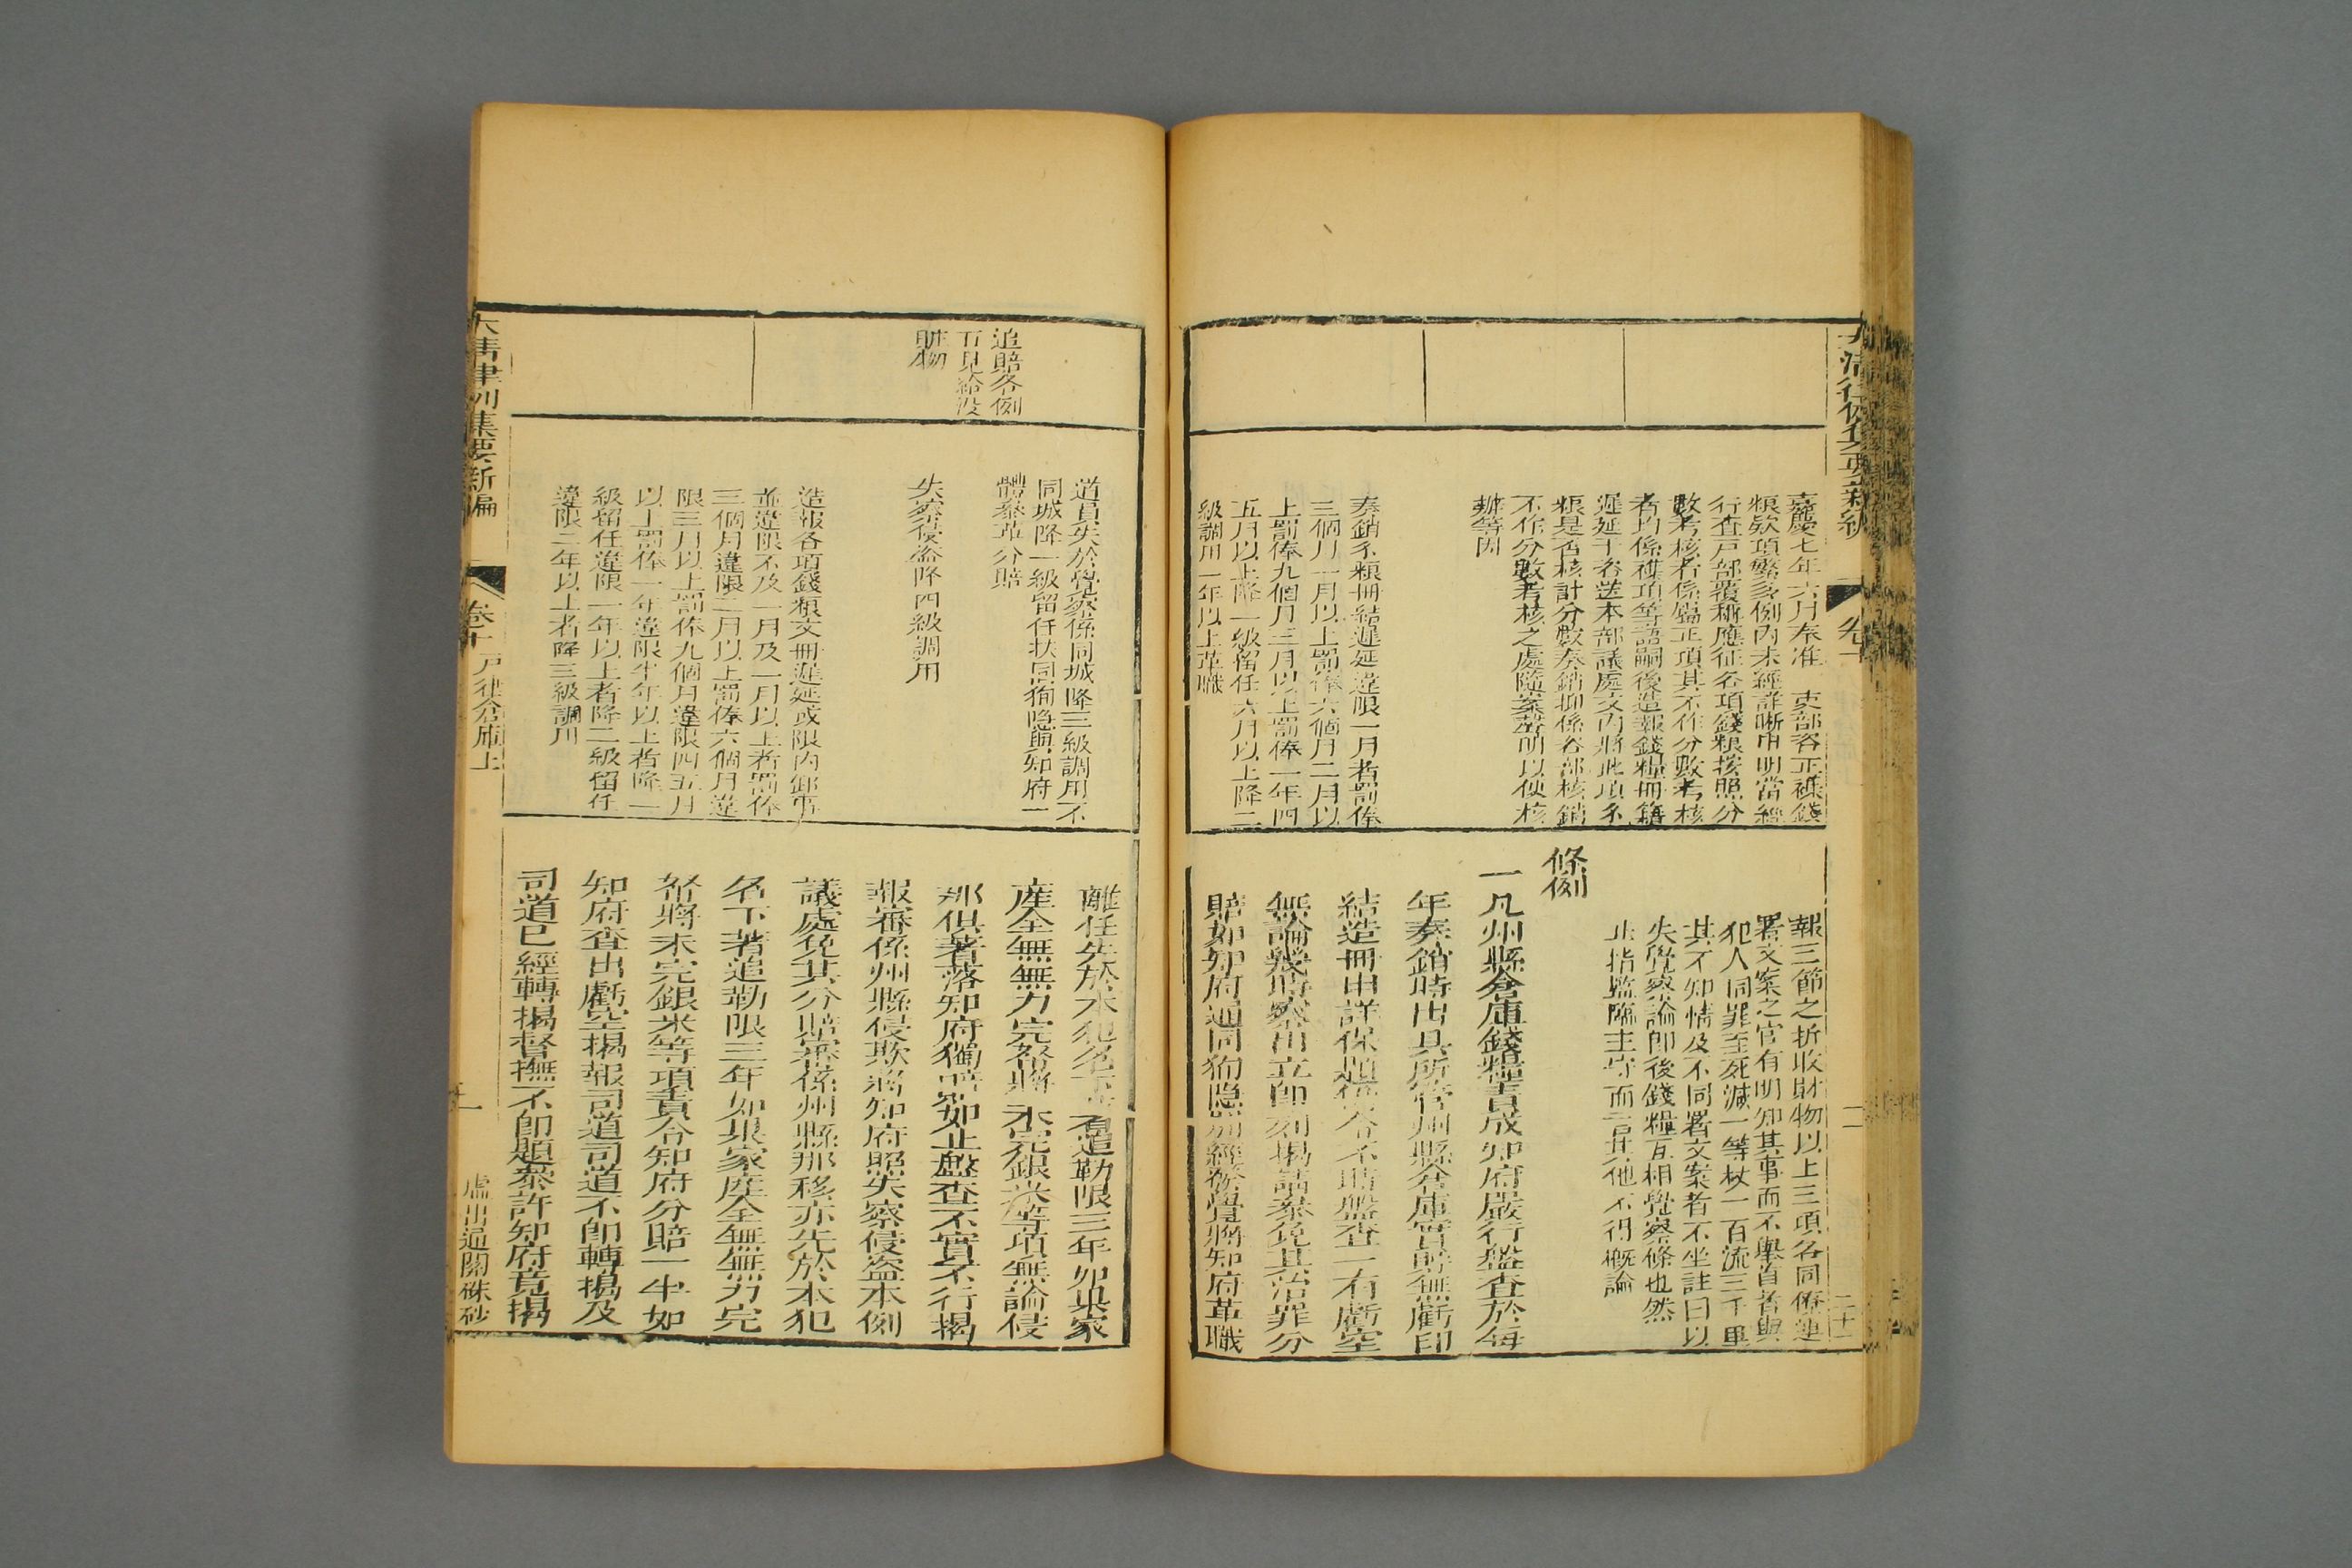 嘉慶七年六月奉准　吏部咨正襍錢
粮欵項繁多例內未經詳晰申明當經
行查戶部覆稱應征各項錢粮按照分
數考核者係屬正項其不作分數考核
者均係襍項等語嗣後造報錢糧冊籍
遲延于咨送本部議處文內將此項系
粮是否核計分數奏銷抑係咨部核銷
不作分數考核之處隨案聲明以便核
辦等因
奏銷系粮冊結遲延違限一月者罰俸
三個月一月以上罰俸六個月二月以
上罰俸九個月三月以上罰俸一年四
五月以上降一級留任六月以上降二
級調用一年以上革職
報三節之折收財物以上三項名同僚連
署文案之官有明知其事而不舉首者與
犯人同罪至死減一等杖一百流三千里
其不知情及不同署文案者不坐註曰以
失覺察論卽後錢糧互相覺察條也然
止指監臨主守而言其他不得概論
條例
一凡州縣倉庫錢糧責成知府嚴行盤查於每
年奏銷時出具所管州縣倉庫實貯無虧印
結造冊申詳保題倘各不時盤查一有虧空
無論幾時察出立卽刻揭請叅免其治罪分
賠如知府通同狥隱別經發覺將知府革職
追賠各例
互見給沒
贓物
道員失於覺察係同城降三級調用不
同城降一級留任扶同狥隱與知府一
體叅革分賠
失察侵盜降四級調用
造報各項錢粮文冊遲延或限內卸事
並違限不及一月及一月以上者罰俸
三個月違限二月以上罰俸六個月違
限三月以上罰俸九個月違限四五月
以上罰俸一年違限半年以上者降一
級留任違限一年以上者降二級留任
違限二年以上者降三級調用
離任先於本犯名下着追勒限三年如果家
產全無無力完帑將未完銀米等項無論侵
那俱著落知府獨賠如止盤查不實不行揭
報審係州縣侵欺將知府照失察侵盜本例
議處免其分賠審係州縣那移亦先於本犯
名下著追勒限三年如果家産全無無力完
帑將未完銀米等項責令知府分賠一半如
知府查出虧空揭報司道司道不卽轉揭及
司道已經轉揭督撫不卽題叅許知府竟揭
大清律例集要新編　卷十一戶律倉庫上